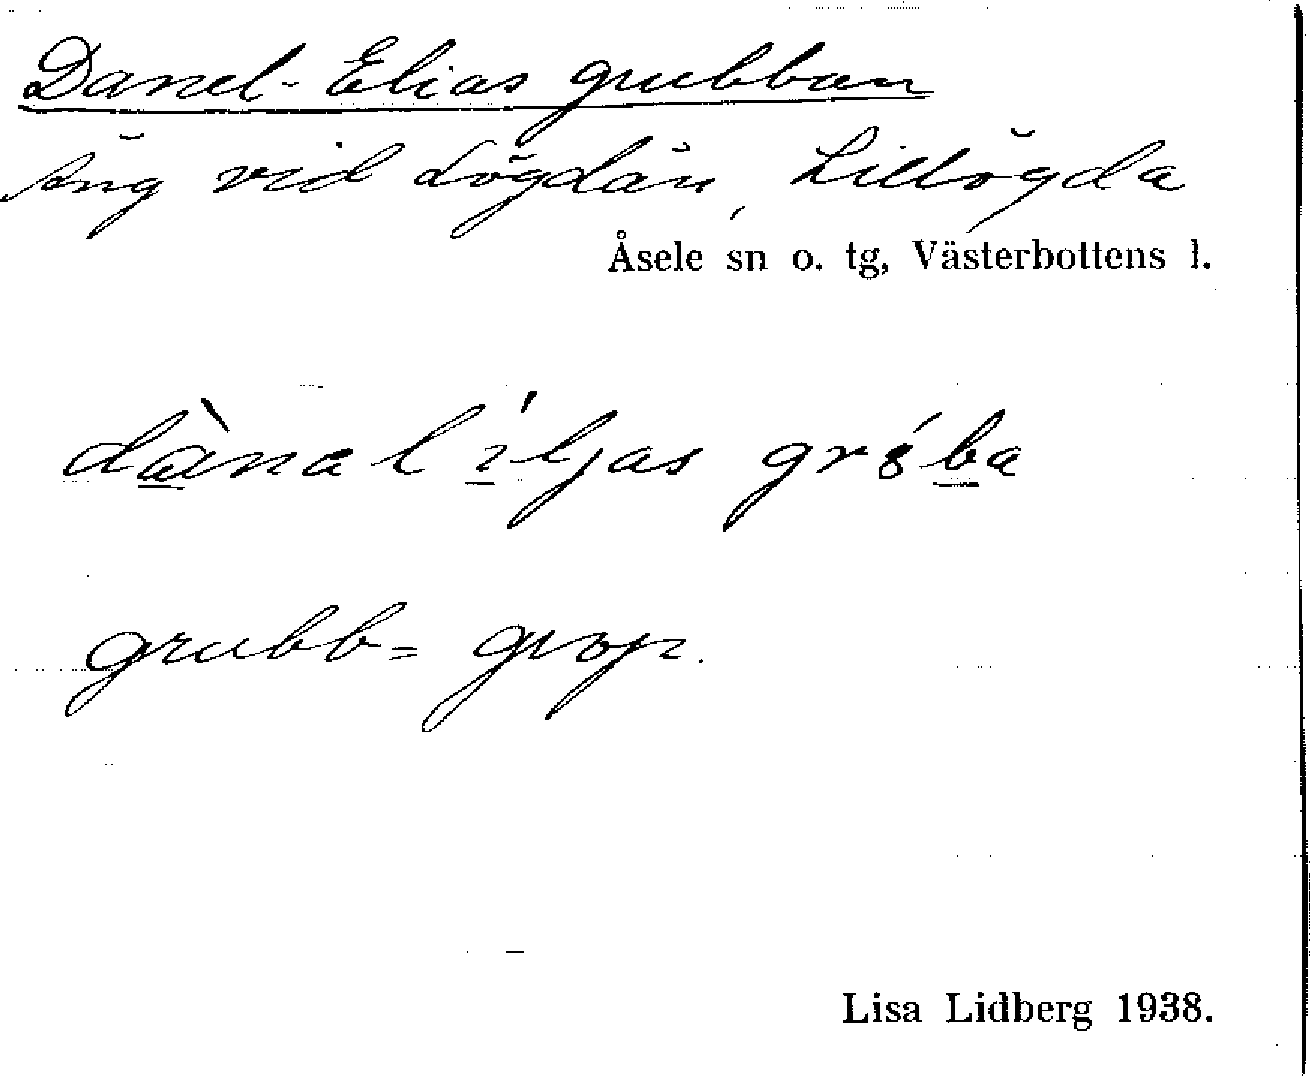 Danel-Elias grubban
Äng vid Lögdån, Lillögda
Åsele sn o. tg, Västerbottens l.
grubb = grop.
Lisa Lidberg 1938.